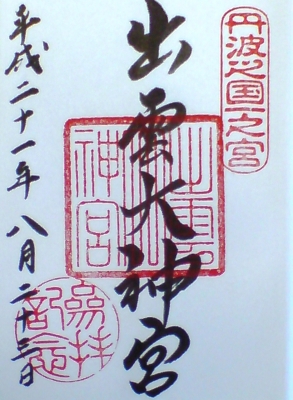 丹波之国一之宮
出雲大神宮
出雲大神宮
平成二十一年八月二十三日
参拝記念